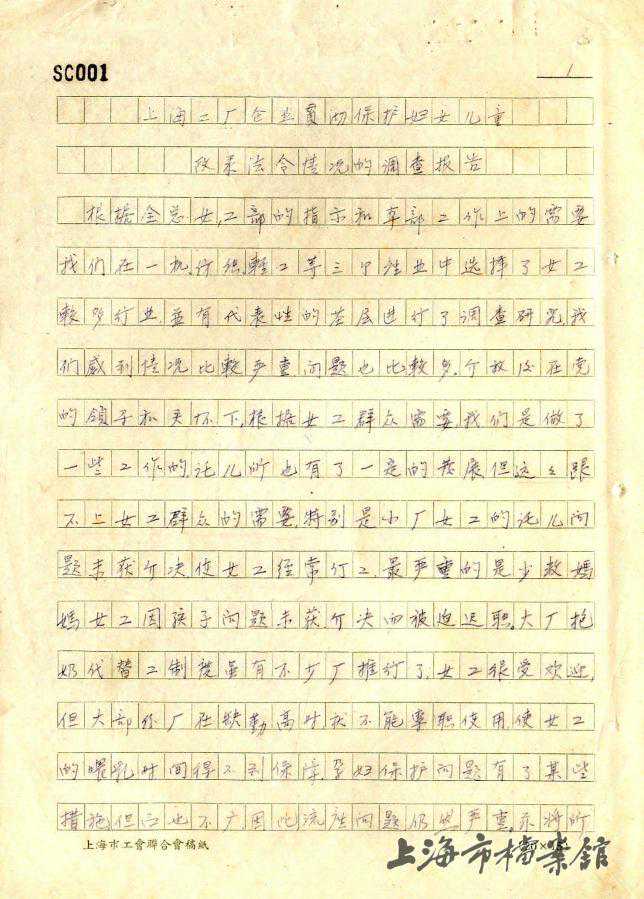 SC001
1
上海工厂企业贯彻保护妇女儿童
政策法令情况的调查报告
根据全总女工部的指示和本部工作上的需要
我们在一机纺织轻工等三个产业中选择了女工
较多行业,并有代表性的基层进行了调查研究,我
们感到情况比较严重,问题也比较多,介放后在党
的领子和关怀下,根据女工群众需要,我们是做了
一些工作的,讬儿所也有了一定的发展但远远跟
不上女工群众的需要,特别是小厂女工的讬儿问
题未获介决,使女工经常行工,最严重的是少数妈
妈女工因孩子问题未获介决而被迫退职。大厂抱
奶代替工制度虽有不少厂推行了,女工很受欢迎,
但大部份厂在缺勤高时就不能专职使用,使女工
的喂乳时间得不到保障,孕妇保护问题有了某些
措施,但也不广,因此流产问题仍然严重,
上海市工會聯合會稿紙
上海市檔案館